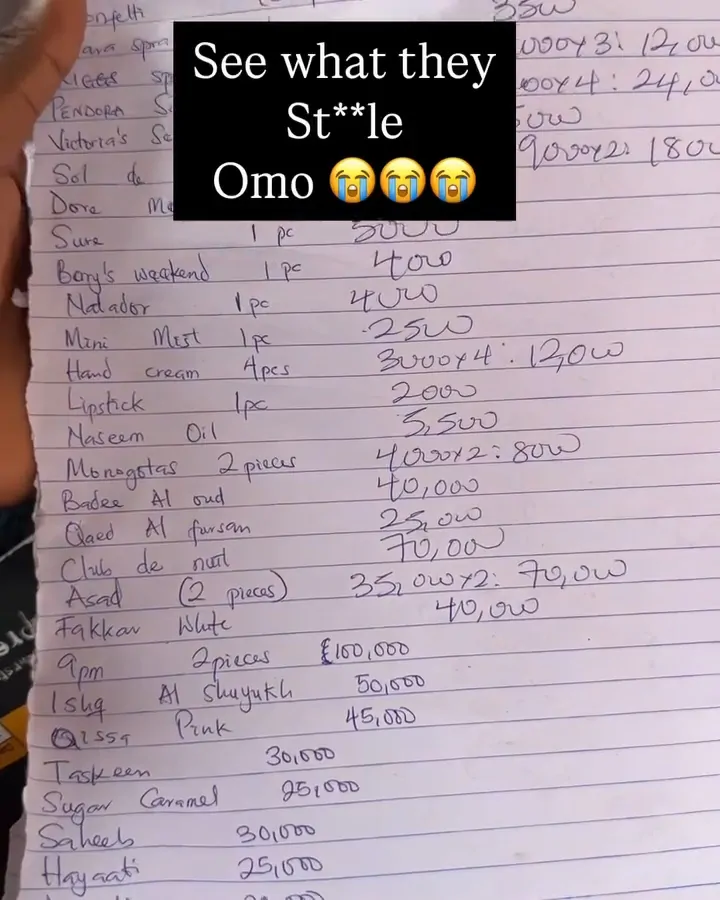 See what they
St**le
Omo 😭😭😭
onfetti 3500
ara spra 000x3: 12,00
sp 00x4: 24,0
PENDORA S
Victoria's Se 9000x2: 180
Sol de
Dore
Sure 1 pc 5000
Bery's weekend 1 pc 4000
Natador 1pc 4000
Mini Mist 1pc 2500
Hand cream 4pcs 3000x4: 12,000
Lipstick 1pc 2000
Naseem Oil 5,500
Monogotas 2 pieces 4000x2: 8000
Badee Al oud 40,000
Qaed Al fursan 25,000
Club de nuit 70,000
Asad (2 pieces) 35,000x2: 70,000
Fakkar White 40,000
9pm 2pieces 100,000
Ishq Al Shuyukh 50,000
Qissa Pink 45,000
Taskeen 30,000
Sugar Caramel 25,000
Saheeb 30,000
Hayaati 25,000